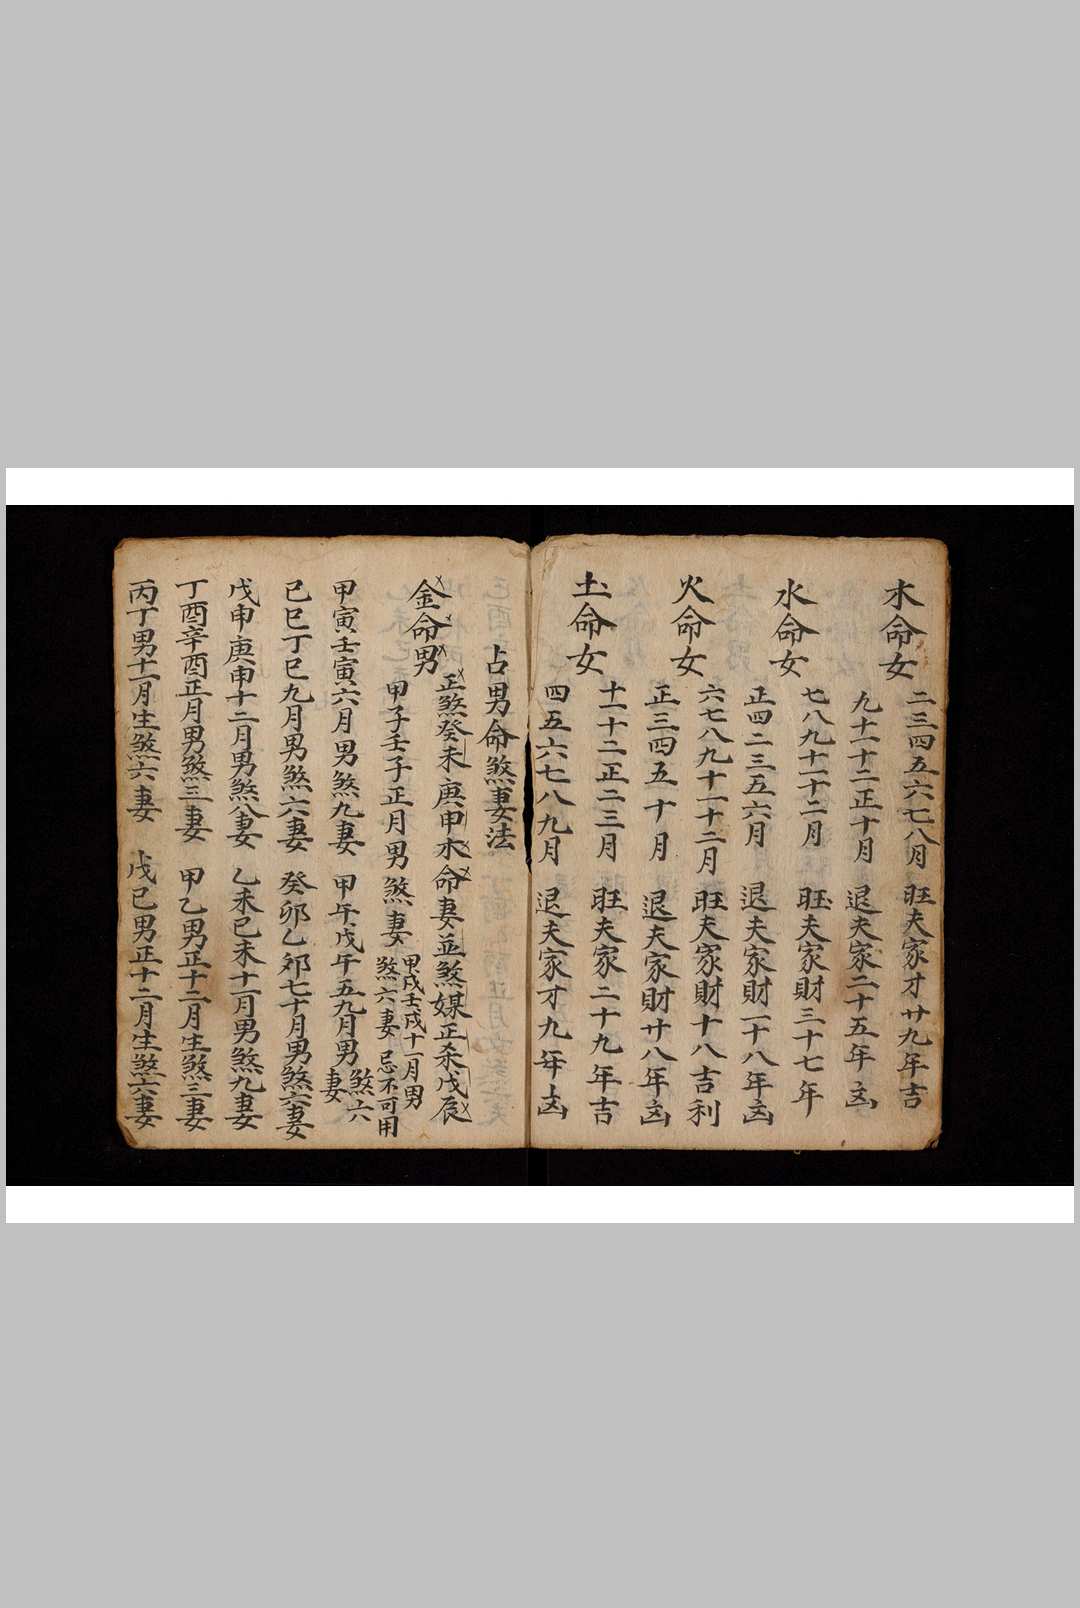 木命女
二三四五六七八月 旺夫家才廿九年吉
九十十一十二正十月 退夫家二十五年凶
水命女
七八九十十一十二月 旺夫家財三十七年
正四二三五六月 退夫家財一十八年凶
火命女
六七八九十十一十二月 旺夫家財十八吉利
正三四五十月 退夫家財廿八年凶
土命女
十一十二正二三月 旺夫家二十九年吉
四五六七八九月 退夫家才九年凶
占男命煞妻法
正煞癸未庚申水命妻並煞媒正杀戊辰
金命男
甲子壬子正月男煞妻 甲戌壬戌十一月男煞六妻 忌不可用
甲寅壬寅六月男煞九妻 甲午戊午五九月男煞六妻
己巳丁巳九月男煞六妻 癸卯乙卯七十月男煞六妻
戊申庚申十二月男煞八妻 乙未己未十一月男煞九妻
丁酉辛酉正月男煞三妻 甲乙男正十二月生煞三妻
丙丁男十一月生煞六妻 戊己男正十二月生煞六妻